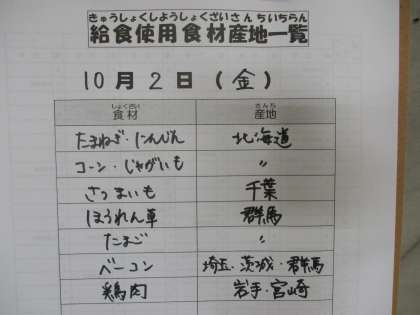 きゅうしょくしようしょくざいさんちいちらん
給食使用食材産地一覧
10月2日(金)
しょくざい さんち
食材 産地
たまねぎ・にんじん 北海道
コーン・じゃがいも 〃
さつまいも 千葉
ほうれん草 群馬
たまご 〃
ベーコン 埼玉・茨城・群馬
鶏肉 岩手・宮崎